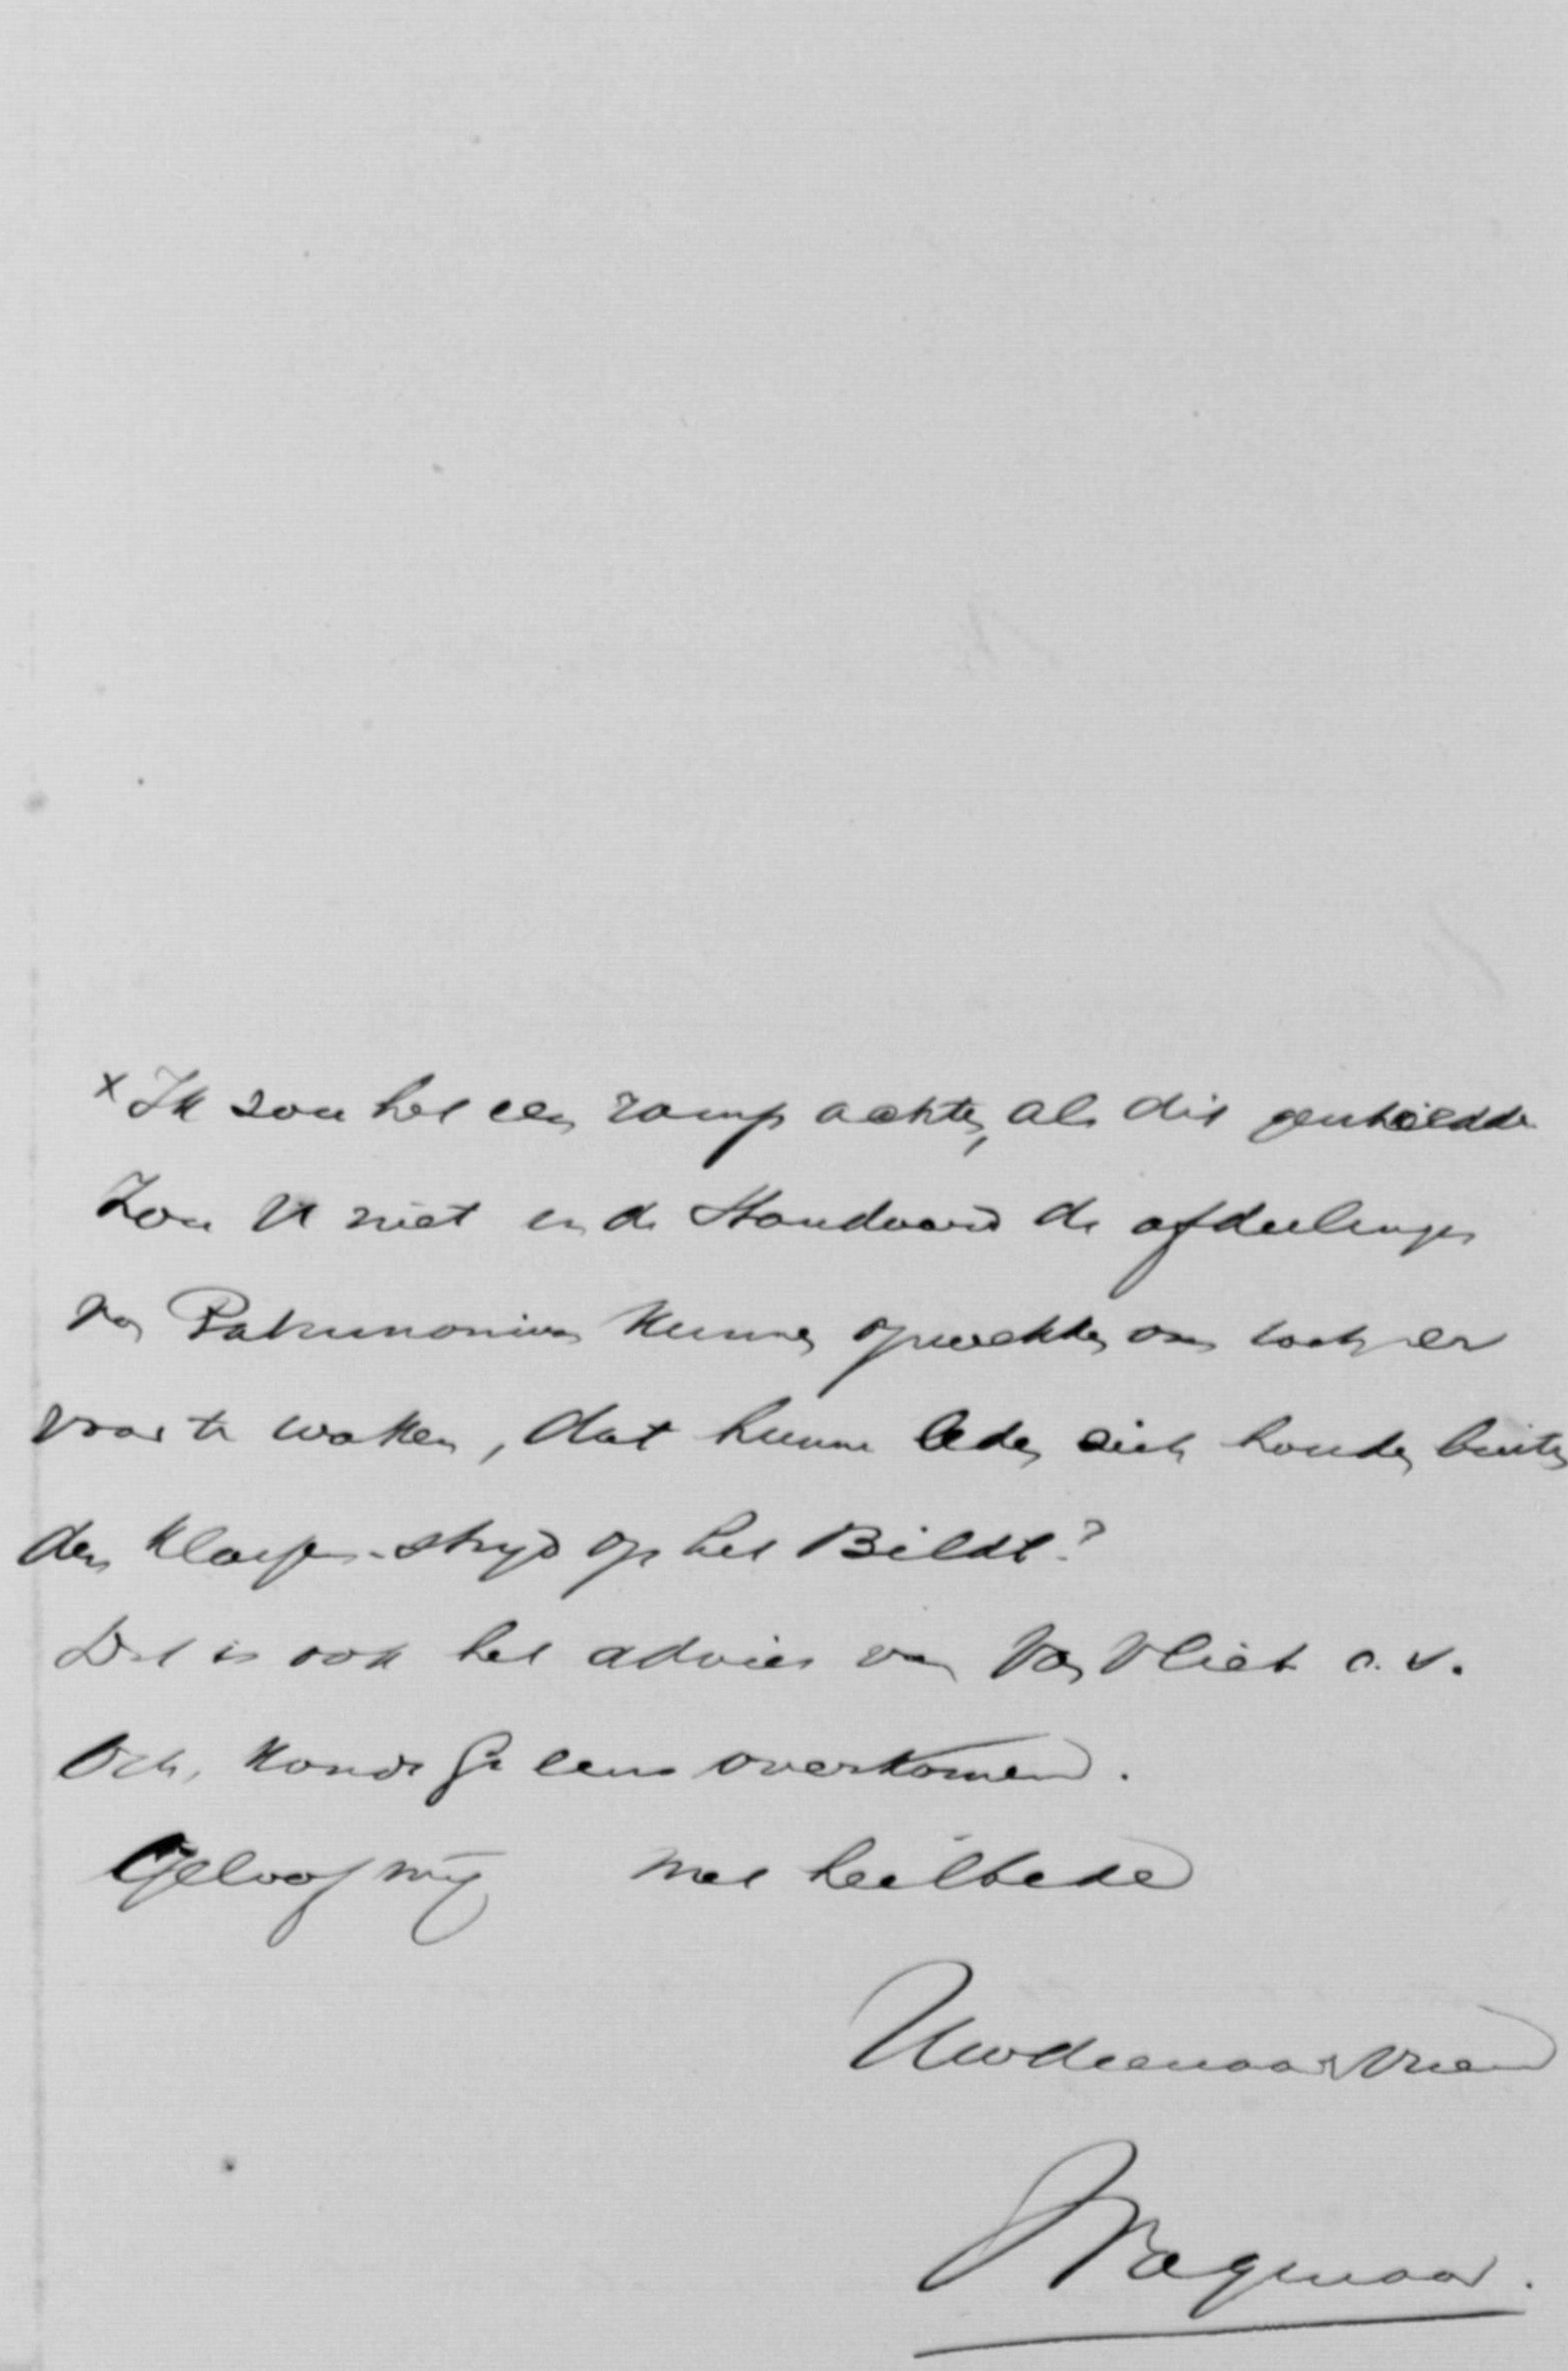 x Ik zou het een ramp achten, als dit gebeurde
Zou U niet in de Standaard de afdeelingen
van Patrimonium kunnen opwekken om toch er
voor te waken, dat hunne leden zich houden buiten
den klassen-strijd op het Bildt?
Dit is ook het advies van Van Vliet o.a.
Och, konde Ge eens overkomen.
Geloof mij met heilbede
Uw dienaar & vriend
Wagenaar.